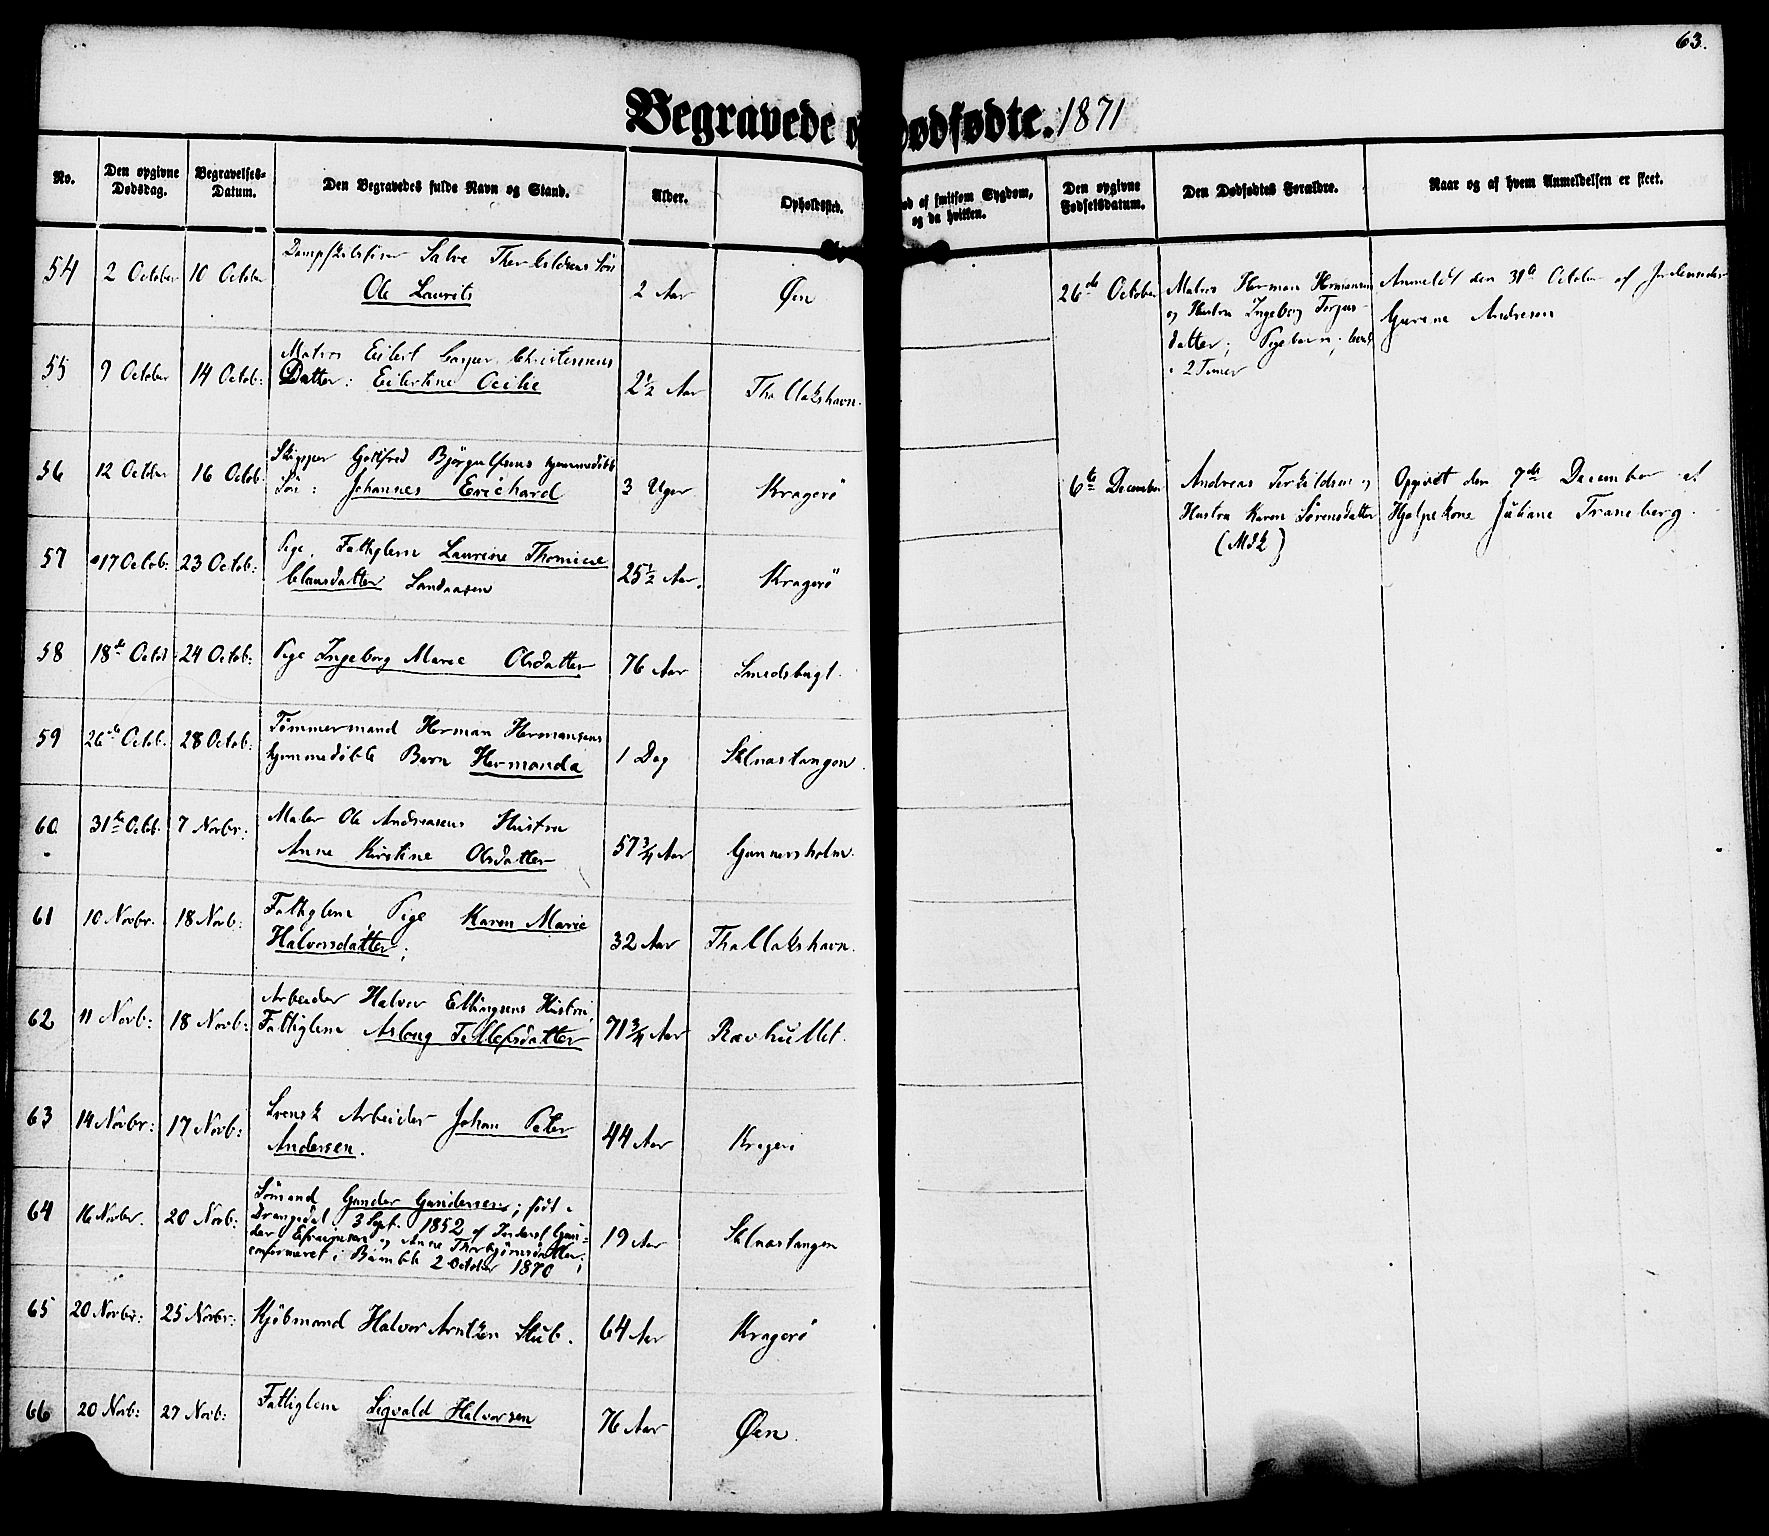 63.
Begravede o dødfødte. 1871
No.
Den opgivne Dødsdag.
Begravelses-Datum.
Den Begravedes fulde Navn og Stand.
Alder.
Opholdssted.
af smitsom Sygdom, og da hvilken.
Den opgivne Fødselsdatum.
Den Dødfødtes Forældre.
Naar og af hvem Anmeldelsen er skeet.
54 2 October 10 October Dampskibsfører Salve Therkildsens Søn
Ole Laurits 2 Aar Øen
55 9 October 14 Octob: Matros Eilert Casper Christensens
Datter: Eilertine Cecilie 2 1/2 Aar Thallakshavn.
56 12 Octbr 16 Octob. Skipper Gotfred Bjørgulfsens hjemmedøbte
Søn: Johannes Erichard 3 Uger Kragerö
57 17 Octob: 23 Octob: Pige, Fattiglem Laurine Thomine
Clausdatter Sandaasen 25 1/2 Aar. Kragerö
58 18de Octob 24 Octob: Pige Ingeborg Marie Olsdatter 76 Aar Smedsbugt.
59 26de Octob. 28 Octob: Tömmermand Herman Hermansens
hjemmedöbte Barn Hermanda 1 Dag
60 31te Octb. 7 Novbr: Maler Ole Andreasens Hustru
Anne Kirstine Olsdatter 57 3/4 Aar Gunnarsholm.
61 10 Novbr. 18 Novb: Fattiglem, Pige Karen Marie
Halvorsdatter; 32 Aar Thallakshavn.
62 11 Novb: 18 Novb: Arbeider Halvor Ellingsens Hustru,
Fattiglem Asloug Tellefsdatter 71 3/4 Aar Rævhullet.
63 14 Novbr: 17 Novb: Svensk Arbeider Johan Peter
Andersen. 44 Aar Kragerö
64 16 Novbr. 20 Novb: Sömand Gunder Gundersen; født i
Drangedal 3 Sept. 1852 af Inderst Gun-
der Efraimsen og Anne Thorbjörnsdatter;
confirmeret i Bamble 2 October 1870 19 Aar
65 20 Novbr: 25 Novbr: Kjöbmand Halvor Arntzen Stub. 64 Aar Kragerö
66 20 Novb: 27 Novb: Fattiglem Sigvald Halvorsen 76 Aar Øen.
26de October Matros Herman Hermansen
og Hustru Ingeborg Terjes-
datter; Pigebarn, levet
i 2 Timer
Anmeldt den 31te October af Jordemoder
Gurine Andresen
6te December Andreas Terkildsen og
Hustru Karen Sørensdatter
Opgivet den 7de December af
Hjælpekone Juliane Traneberg.